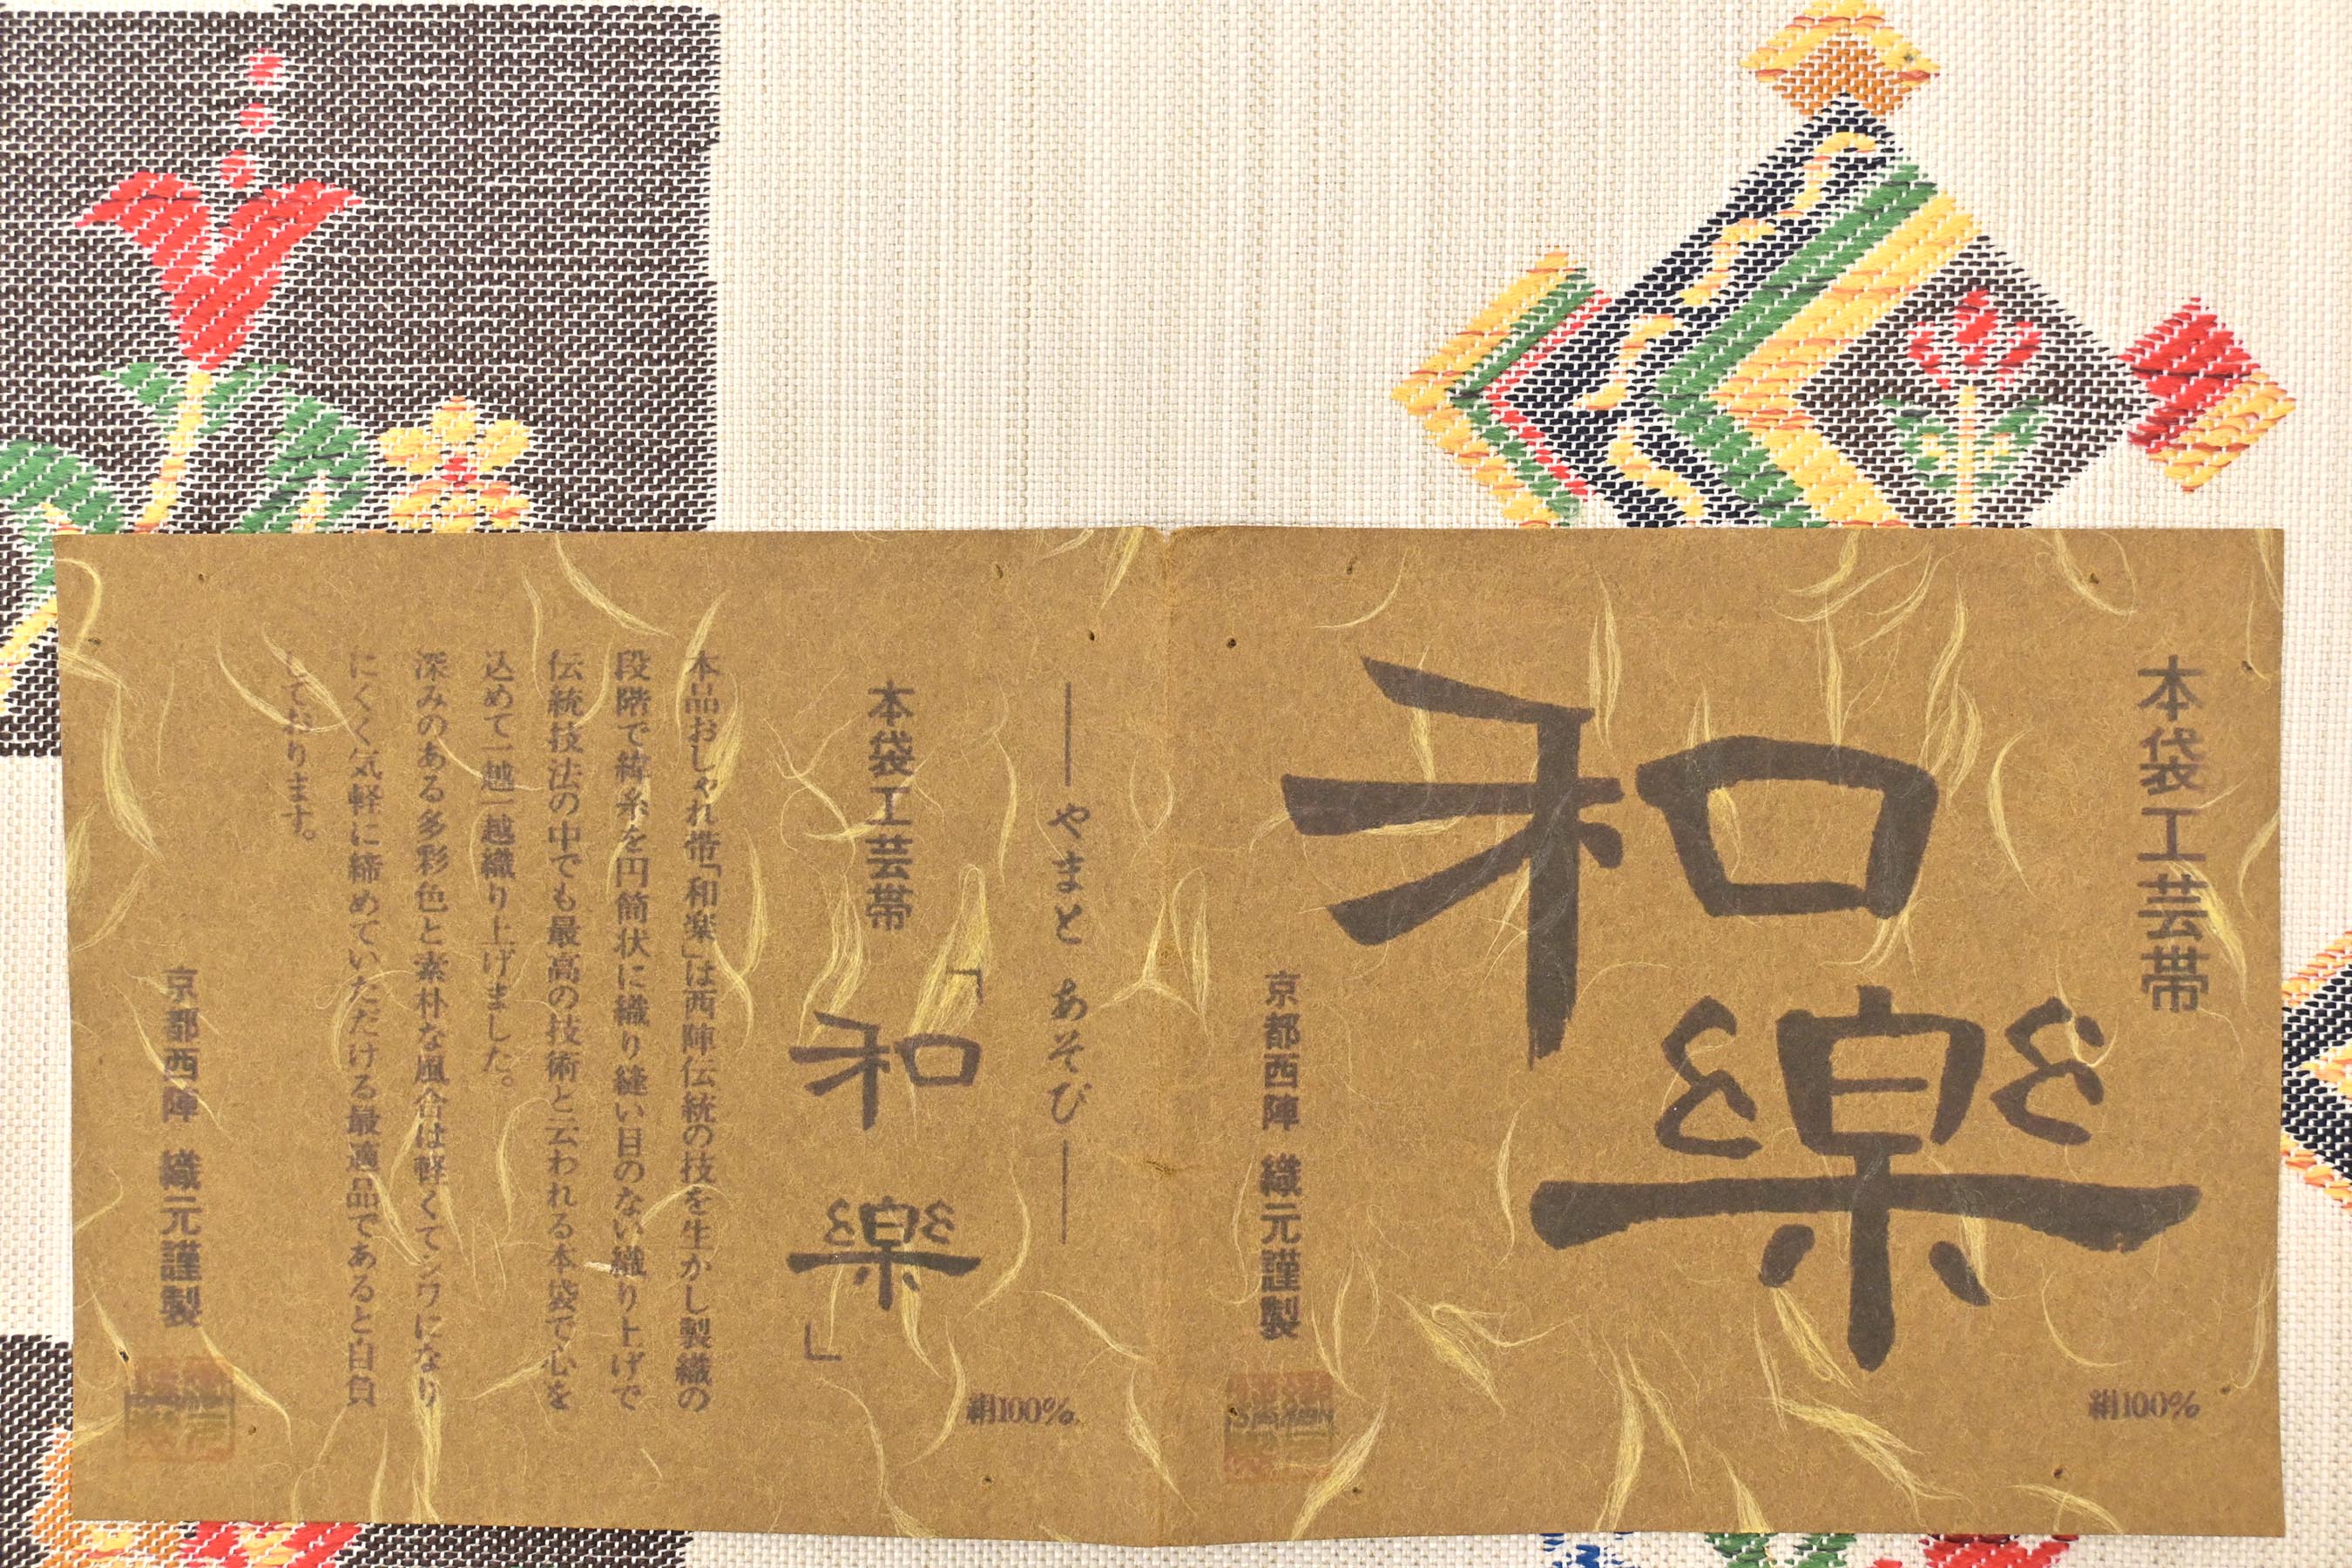 本袋工芸帯
和樂
絹100%
京都西陣 織元謹製
──やまと あそび──
本袋工芸帯
「和樂」
絹100%
本品おしゃれ帯「和楽」は西陣伝統の技を生かし製織の
段階で緯糸を円筒状に織り縫い目のない織り上げで
伝統技法の中でも最高の技術と云われる本袋で心を
込めて一越一越織り上げました。
深みのある多彩色と素朴な風合は軽くてシワになり
にくく気軽に締めていただける最適品であると自負
しております。
京都西陣 織元謹製